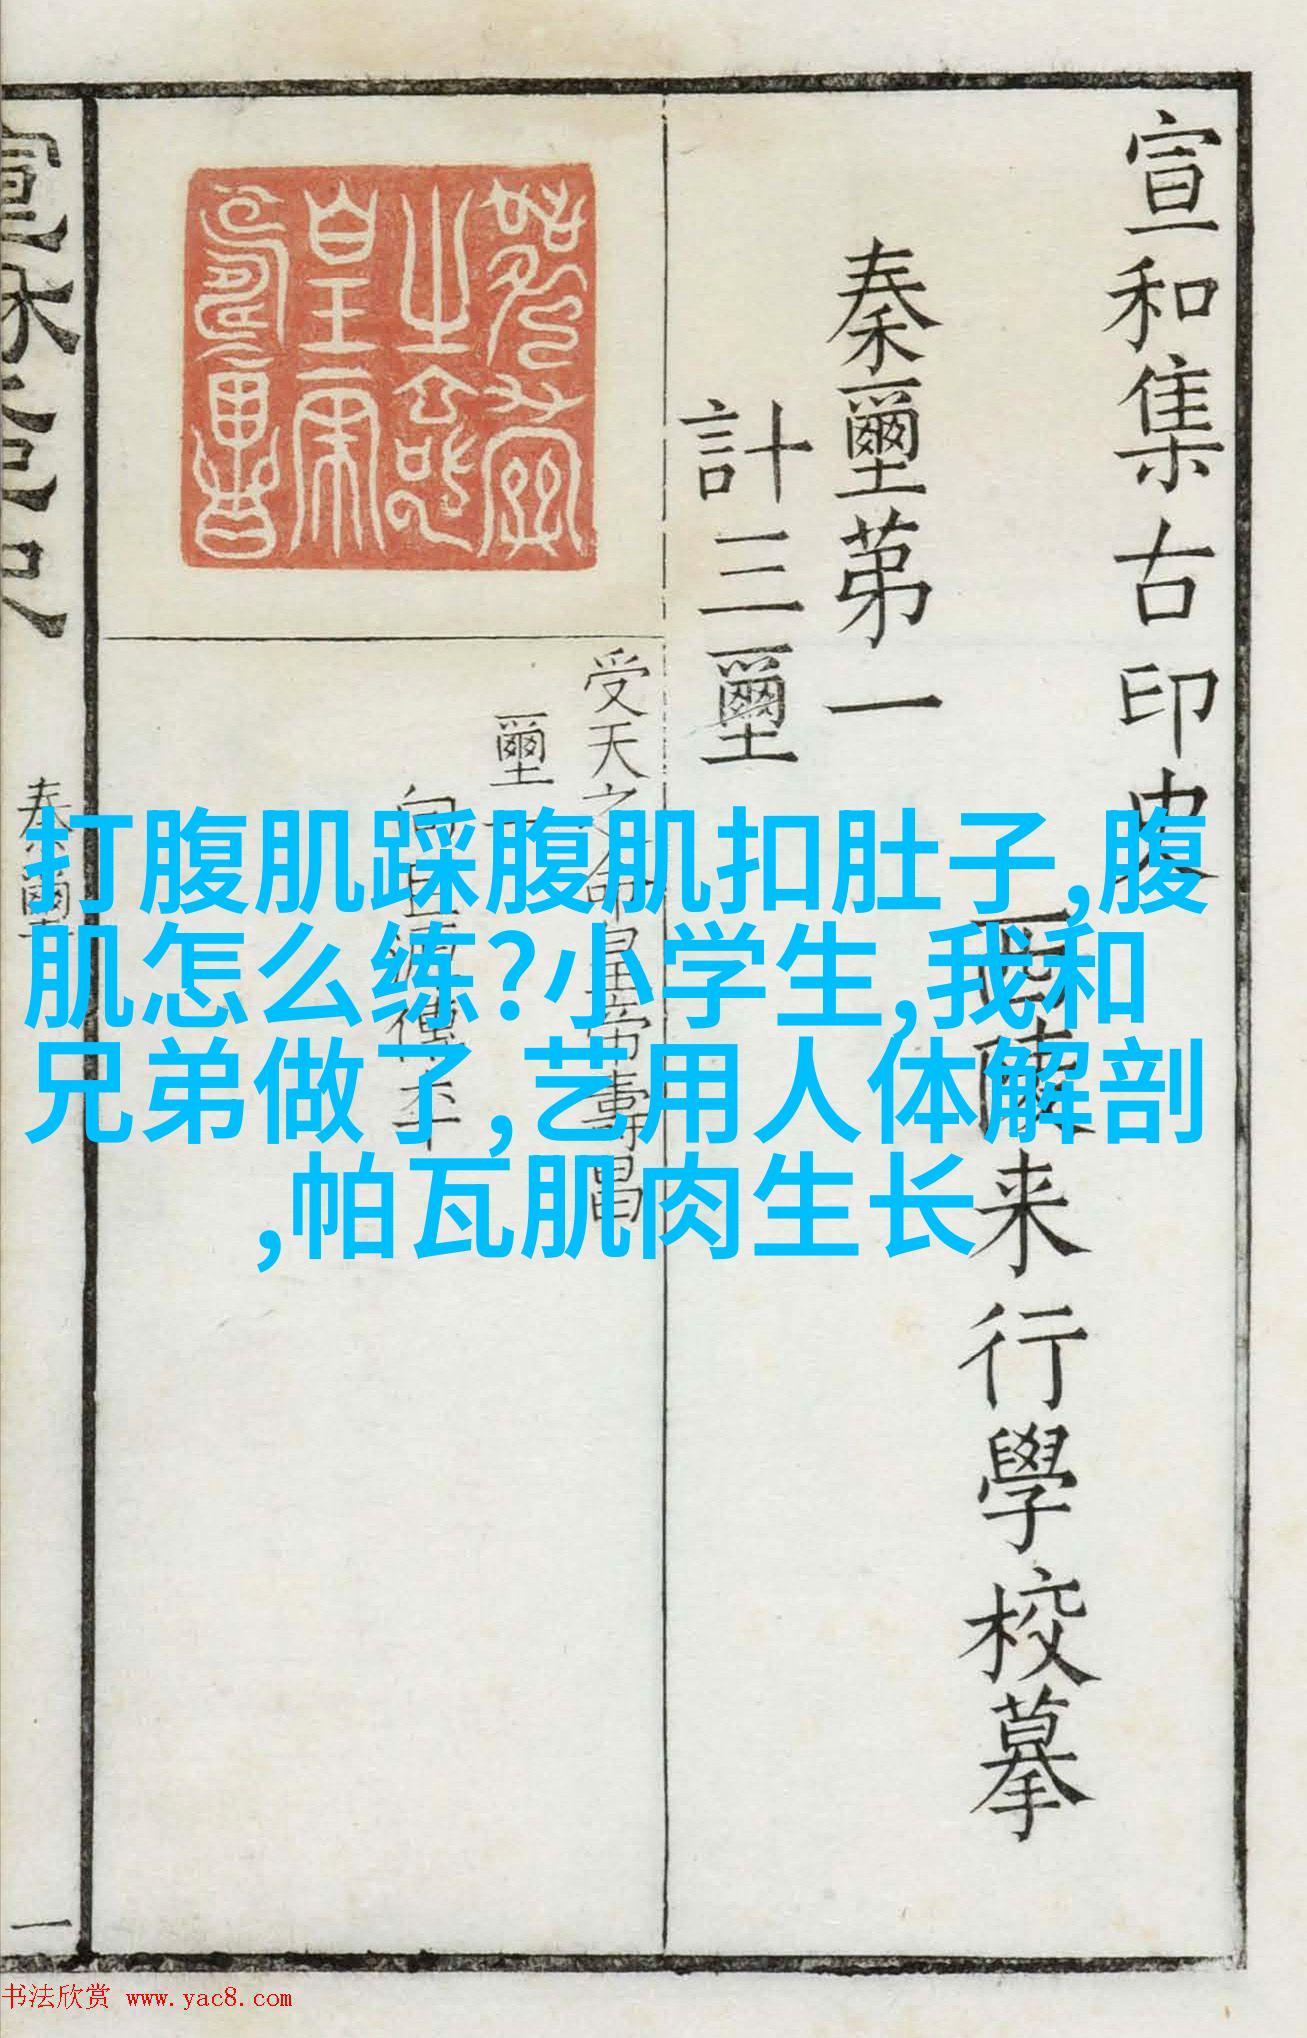 宣和集古印史
西陵来行學校摹
秦璽第一
計三璽
受天之命皇帝壽昌
璽一
向巨源傳本
秦璽
一
打腹肌踩腹肌扣肚子,腹
肌怎么练?小学生,我和
兄弟做了,艺用人体解剖
,帕瓦肌肉生长
书法欣赏 www.yac8.com